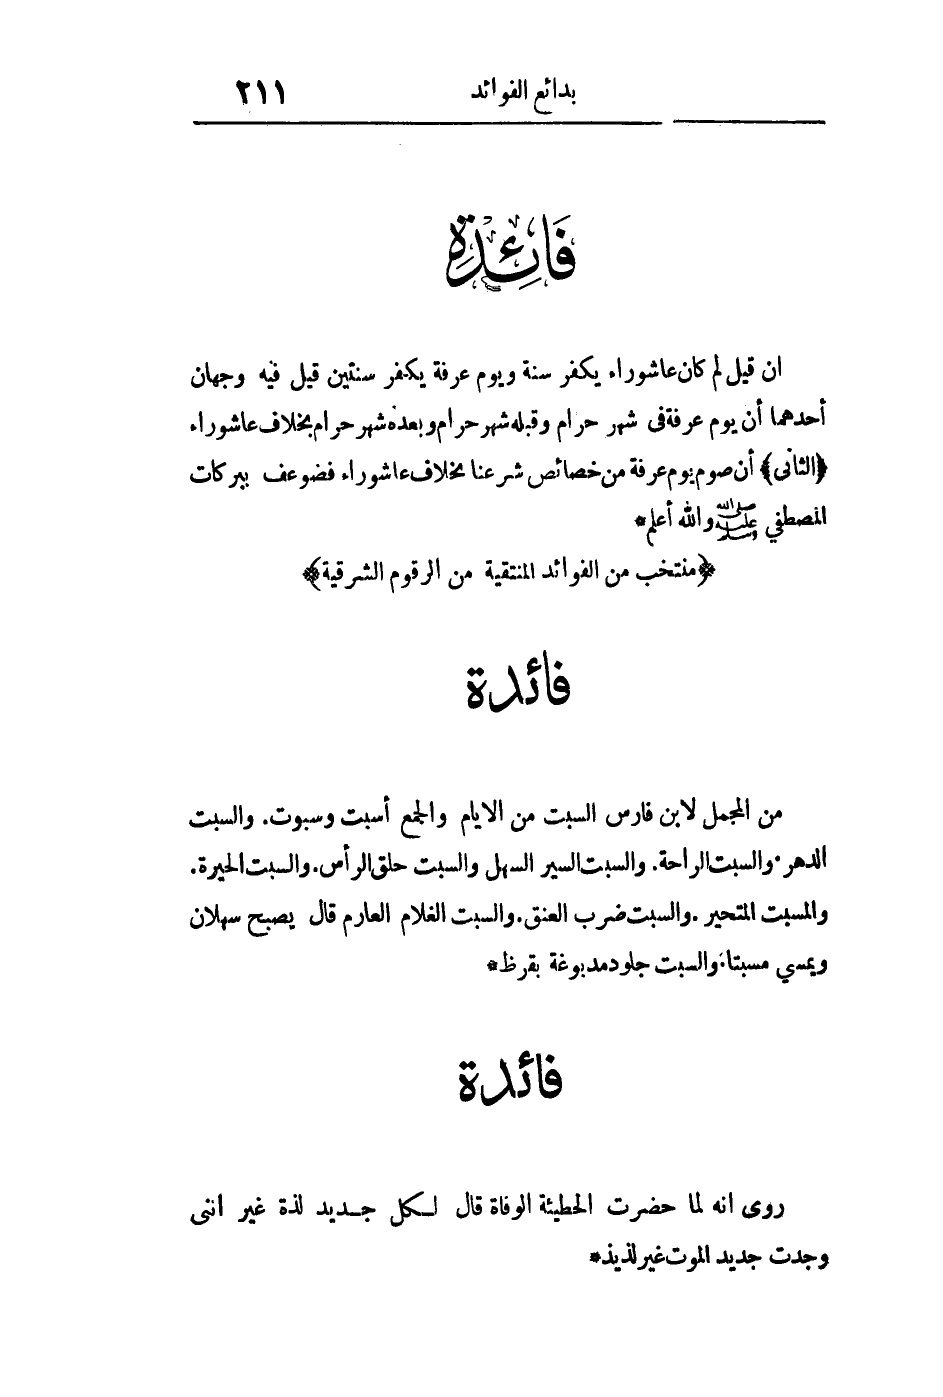 بدائع الفوائد ٢١١
فَائِدَة
ان قيل لم كان عاشوراء يكفر سنة ويوم عرفة يكفر سنتين قيل فيه وجهان
أحدهما أن يوم عرفة فى شهر حرام وقبله شهر حرام وبعده شهر حرام بخلاف عاشوراء
﴿الثانى﴾ أن صوم يوم عرفة من خصائص شرعنا بخلاف عاشوراء فضوعف ببركات
المصطفي ﷺ والله أعلم*
﴿منتخب من الفوائد المنتقية من الرقوم الشرقية﴾
فائدة
من المجمل لابن فارس السبت من الايام والجمع أسبت وسبوت. والسبت
الدهر. والسبت الراحة. والسبت السير السهل والسبت حلق الرأس. والسبت الحيرة.
والمسبت المتحير. والسبت ضرب العنق. والسبت الغلام العارم قال يصبح سهلان
ويمسي مسبتا: والسبت جلود مدبوغة بقرظ*
فائدة
روى انه لما حضرت الحطيئة الوفاة قال لكل جديد لذة غير اننى
وجدت جديد الموت غير لذيذ*